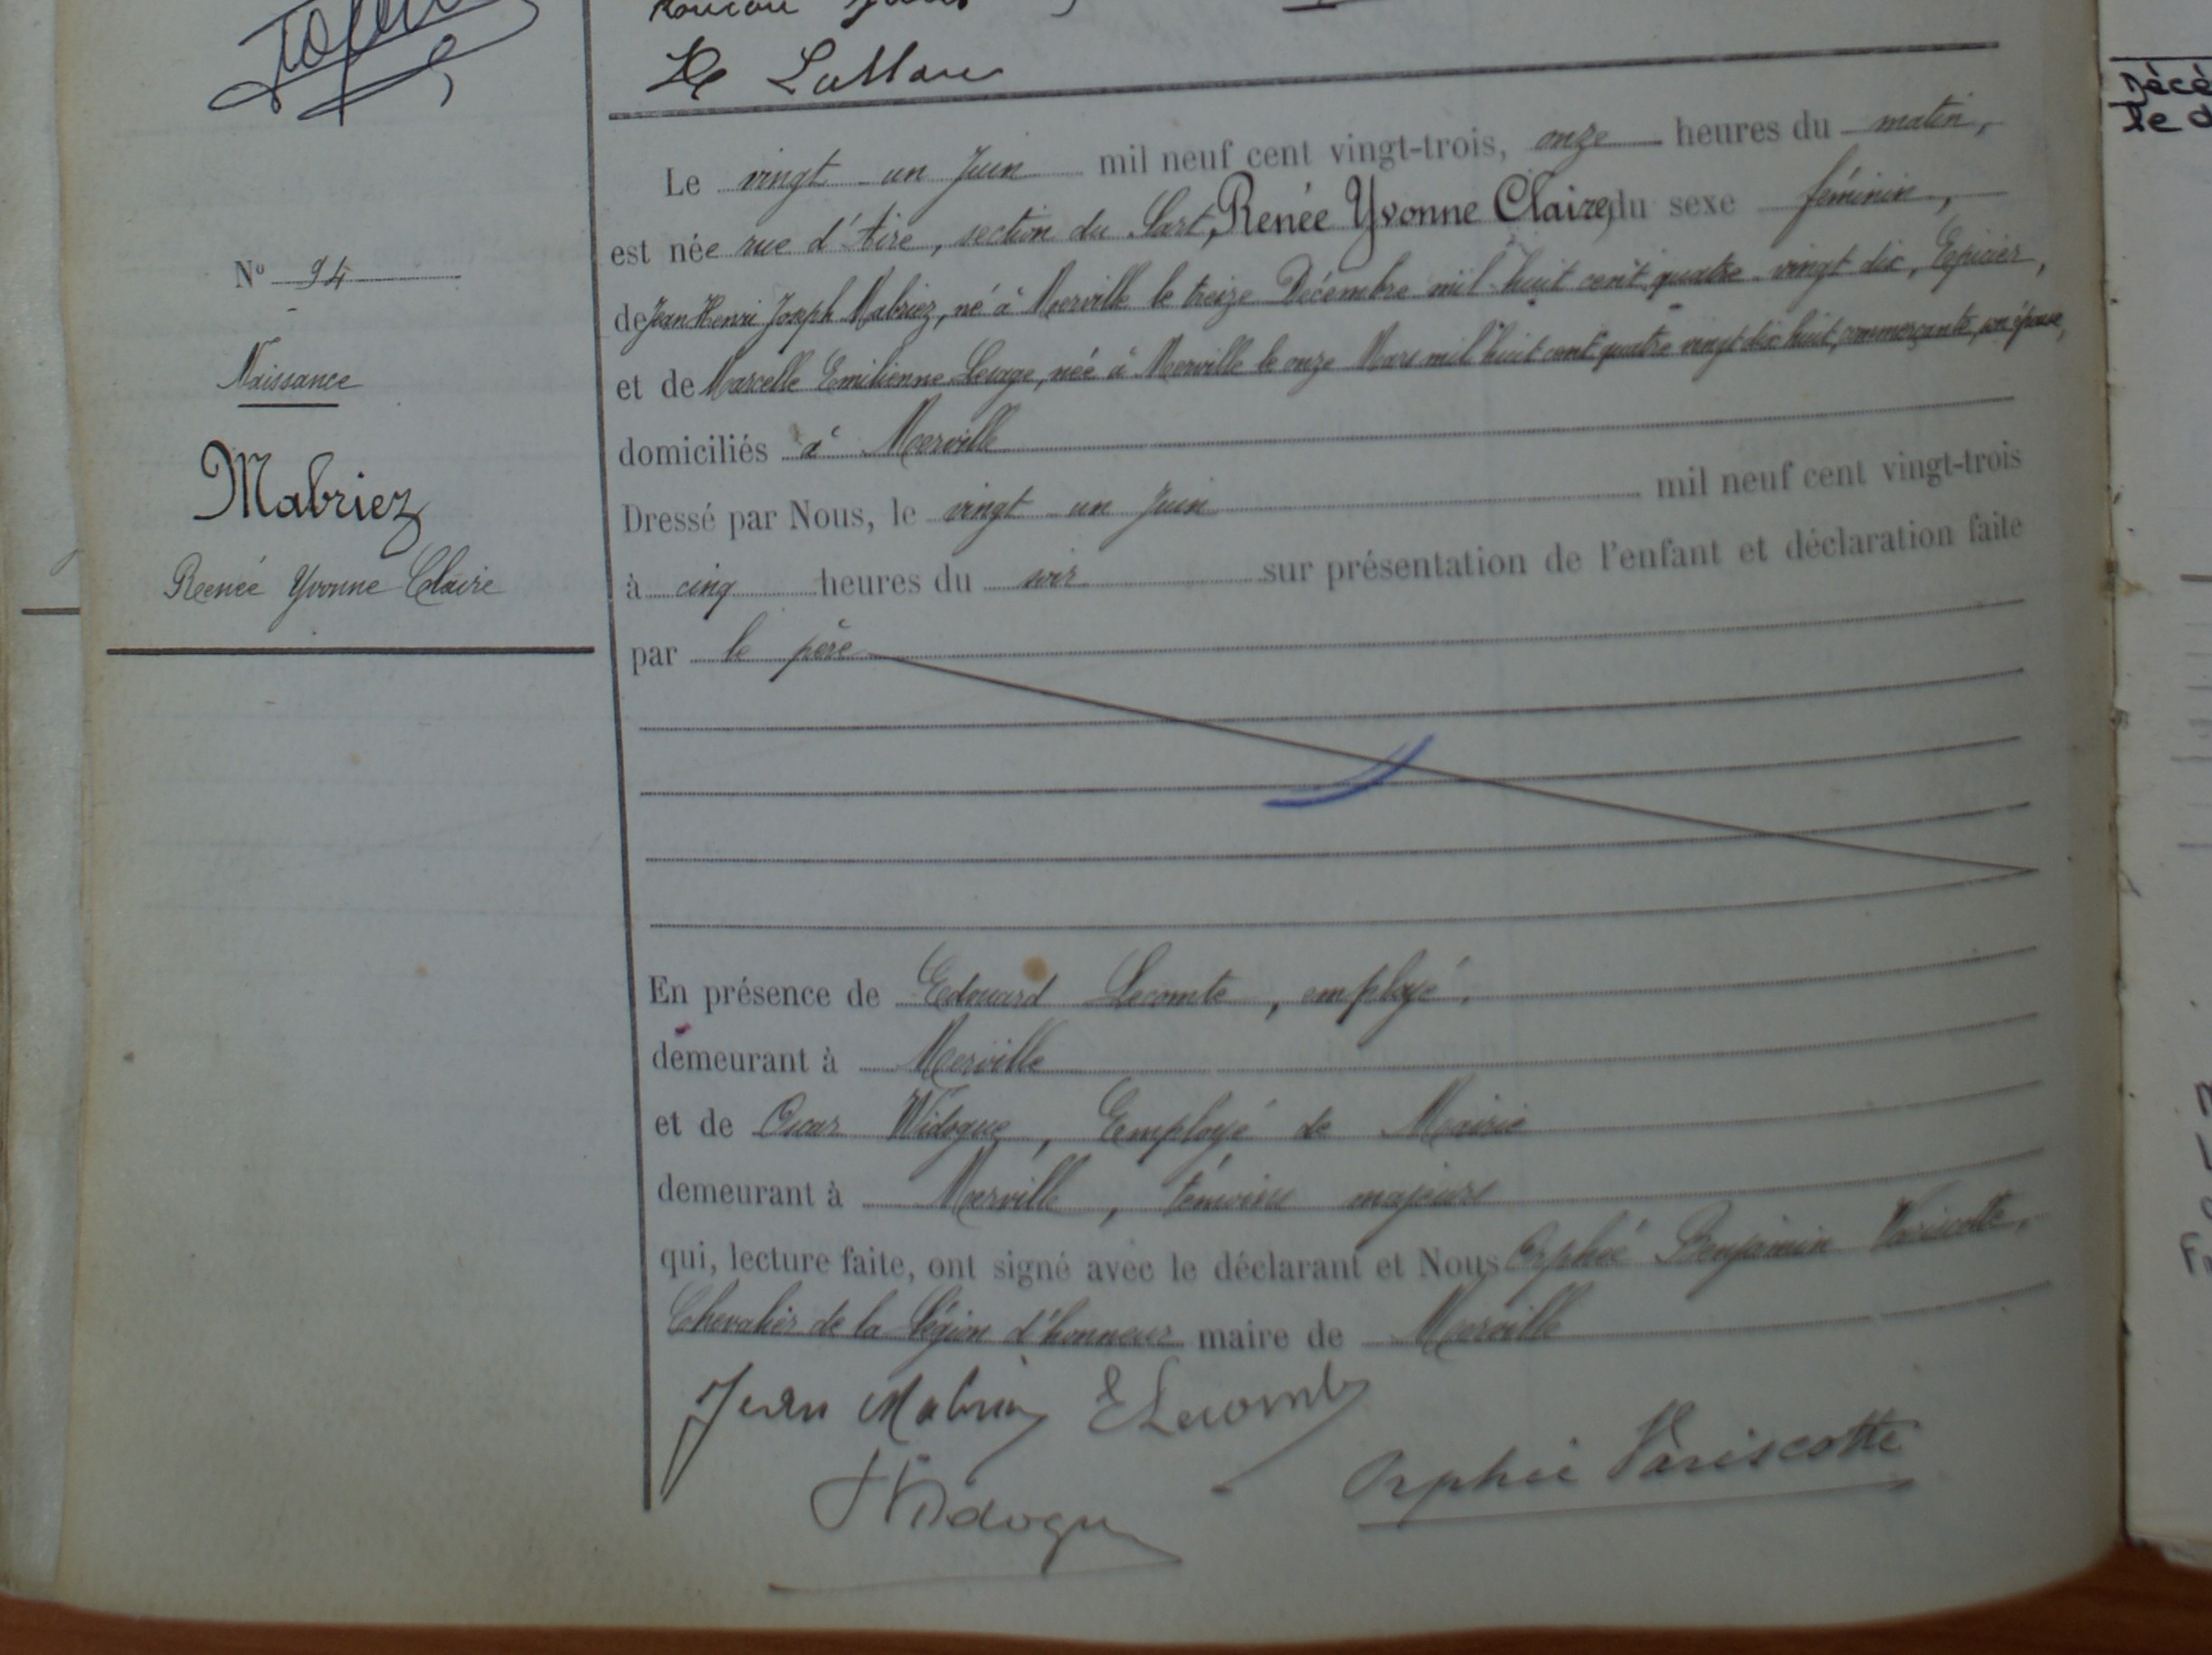 De
Le vingt un Juin mil neuf cent vingt-trois, onze heures du matin,
est née rue d'Aire, section du Sart, Renée Yvonne Claire, du sexe féminin,
de Jean Henri Joseph Mabriez, né à Merville le treize Décembre mil huit cent quatre vingt dix, Epicier,
et de Marcelle Emilienne Lesage, née à Merville le onze Mars mil huit cent quatre vingt dix huit, commerçante, son épouse,
domiciliés à Merville
Dressé par Nous, le vingt un Juin mil neuf cent vingt-trois
à cinq heures du soir sur présentation de l'enfant et déclaration faite
par le père
En présence de Edouard Lecomte, employé,
demeurant à Merville
et de Oscar Widogue, Employé de Mairie
demeurant à Merville, témoins majeurs
qui, lecture faite, ont signé avec le déclarant et Nous Orphée Benjamin Variscotte,
Chevalier de la Légion d'honneur maire de Merville
Jean Mabriez ELecomte
Widogue Orphée Variscotte
N° 94
Naissance
Mabriez
Renée Yvonne Claire
Décé
le d